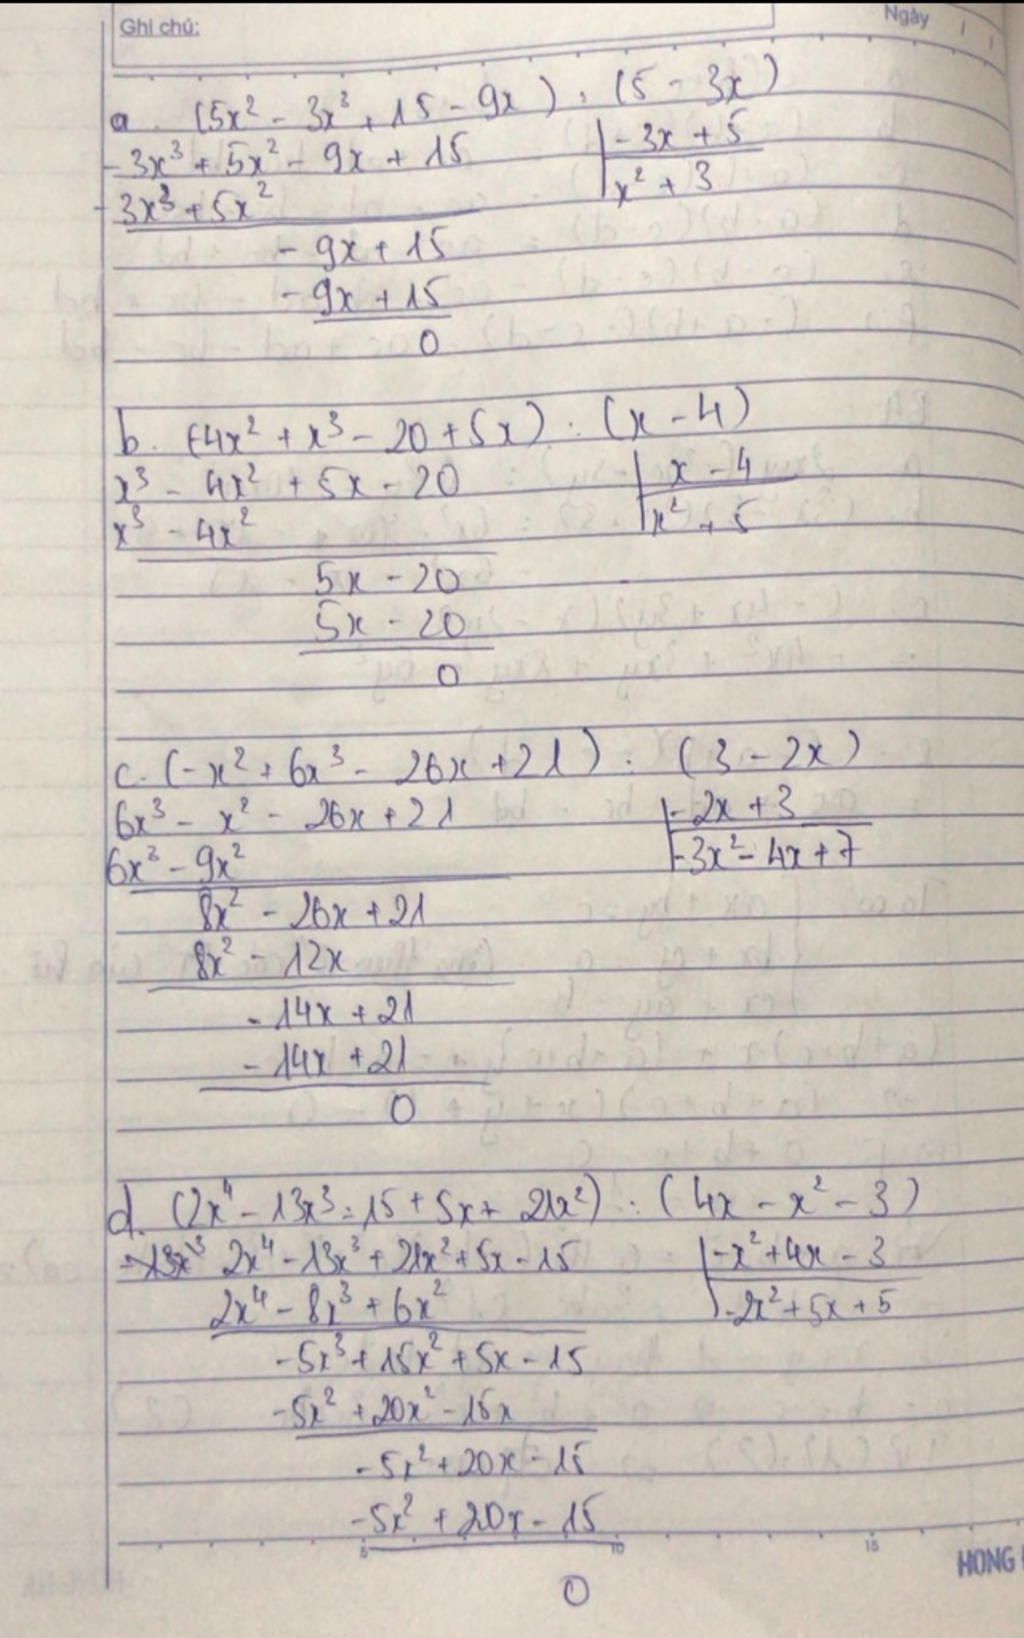 Ghi chú:
Ngày
a. (5x² - 3x³ + 15 - 9x) : (5 - 3x)
-3x³ + 5x² - 9x + 15 | -3x + 5
-3x³ + 5x² | x² + 3
- 9x + 15
- 9x + 15
0
b. (-4x² + x³ - 20 + 5x) : (x - 4)
x³ - 4x² + 5x - 20 | x - 4
x³ - 4x² | x² + 5
5x - 20
5x - 20
0
c. (-x² + 6x³ - 26x + 21) : (3 - 2x)
6x³ - x² - 26x + 21 | -2x + 3
6x³ - 9x² | -3x² - 4x + 7
8x² - 26x + 21
8x² - 12x
- 14x + 21
- 14x + 21
0
d. (2x⁴ - 13x³ - 15 + 5x + 21x²) : (4x - x² - 3)
-13x³ 2x⁴ - 13x³ + 21x² + 5x - 15 | -x² + 4x - 3
2x⁴ - 8x³ + 6x² | -2x² + 5x + 5
-5x³ + 15x² + 5x - 15
-5x² + 20x² - 15x
-5x² + 20x - 15
-5x² + 20x - 15
5 10 15
0